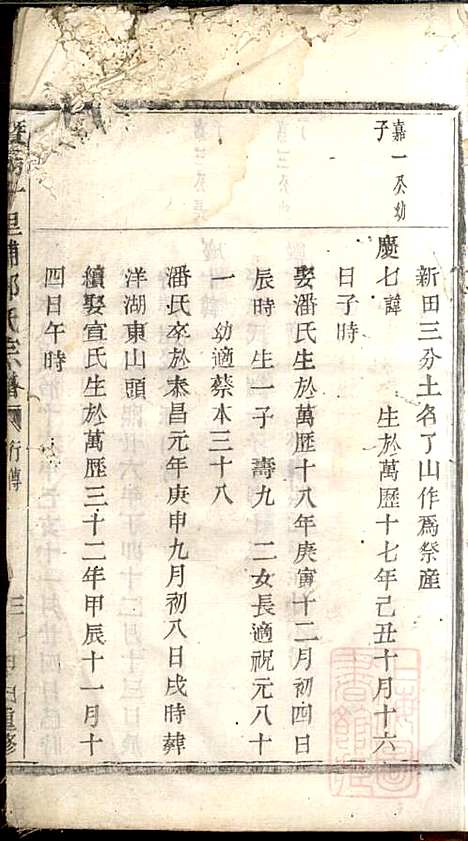 嘉一癸幼
子
新田三分土名了山作爲祭産
慶七諱 生於萬歷十七年己丑十月十六
日子時
娶潘氏生於萬歷十八年庚寅十二月初四日
辰時 生一子 壽九 二女長適祝元八十
一 幼適蔡本三十八
潘氏卒於泰昌元年庚申九月初八日戌時葬
洋湖東山頭
續娶宣氏生於萬歷三十二年甲辰十一月十
四日午時
氏宗譜 行傳
三
重修